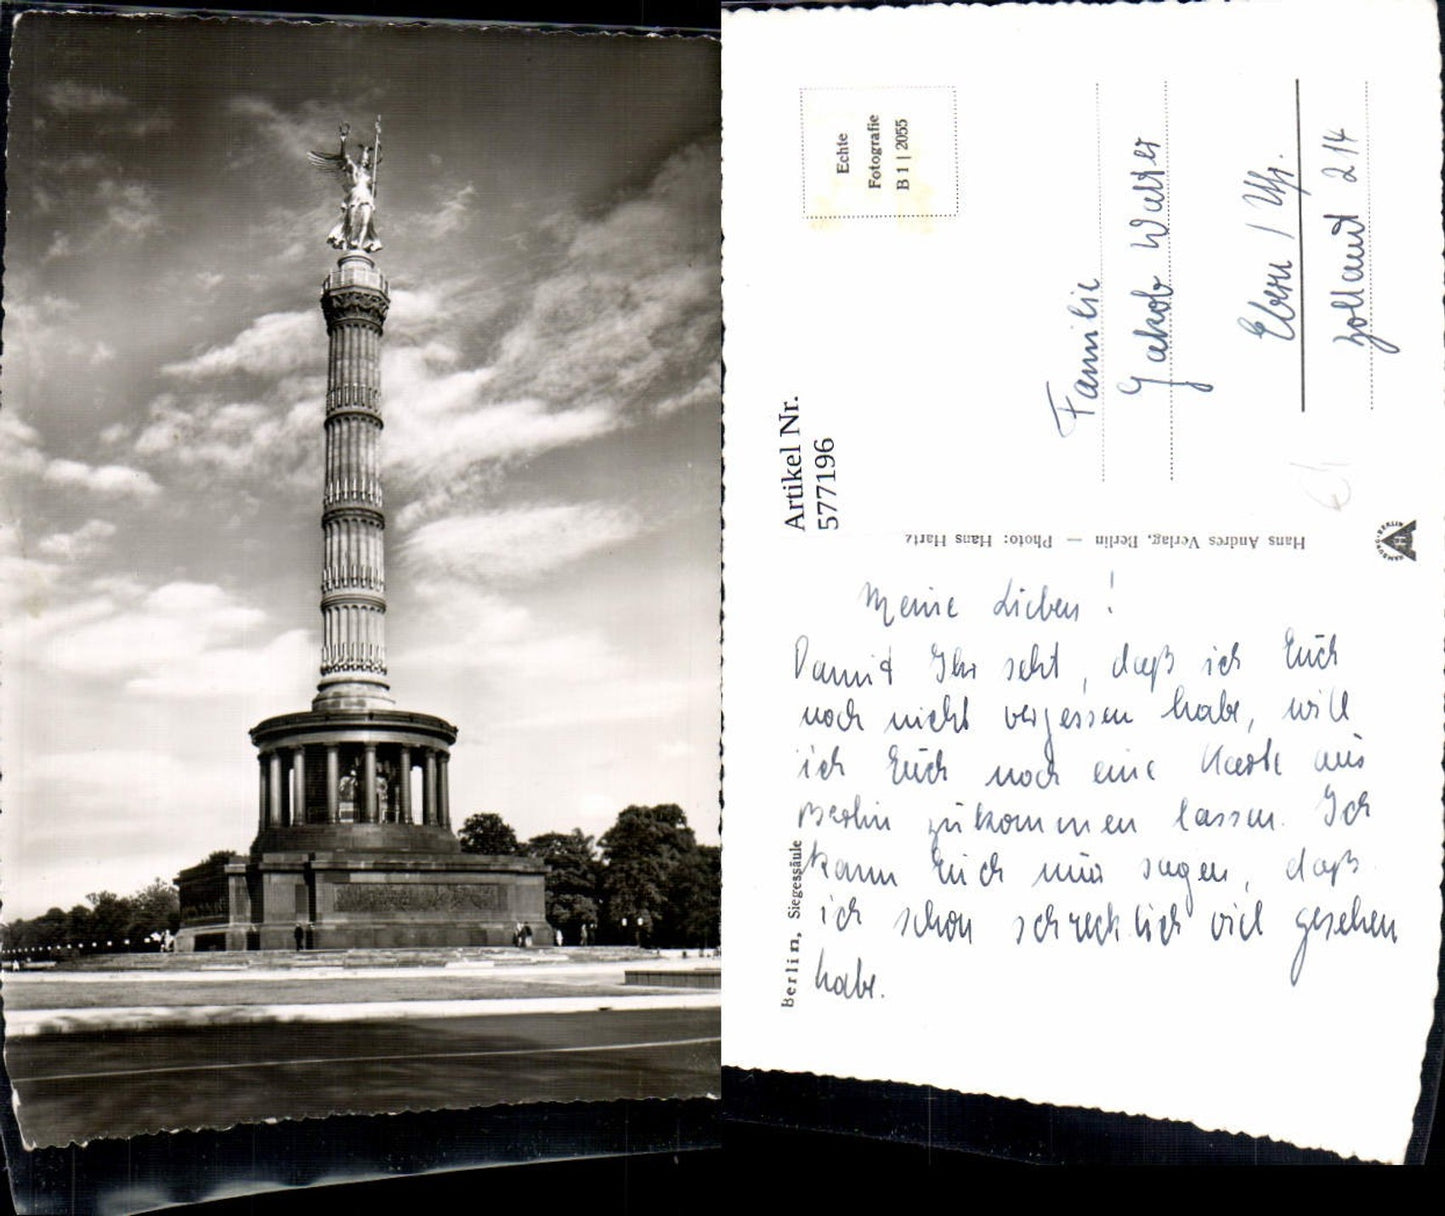 Echte
Fotografie
B 1 | 2055
Familie
Jakob Walter
Ebern / Ufr.
Zolland 214
Artikel Nr.
577196
Hans Andres Verlag, Berlin — Photo: Hans Hartz
HAMBURG-BERLIN
Meine Lieben!
Damit Ihr seht, daß ich Euch
noch nicht vergessen habe, will
ich Euch noch eine Karte aus
Berlin zukommen lassen. Ich
kann Euch nur sagen, daß
ich schon schrecklich viel gesehen
habe.
Berlin, Siegessäule